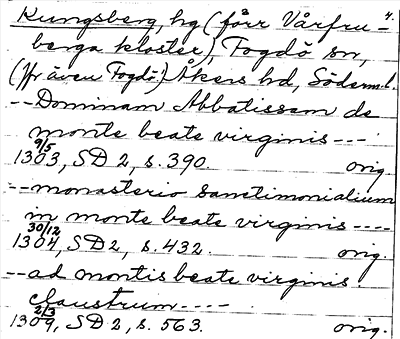 4.
Kungsberg, hg (förr Vårfru-
berga kloster), Fogdö sn,
(Jfr även Fogdö!) Åkers hd, Söderml.
--Dominam Abbatissam de
monte beate virginis ---
9/5
1303, SD 2, s. 390. orig.
--monasterio sanctimonialium
in monte beate virginis ----
30/12
1304, SD 2, s. 432. orig.
--ad montis beate virginis.
claustrum----
2/3
1309, SD 2, s. 563. orig.